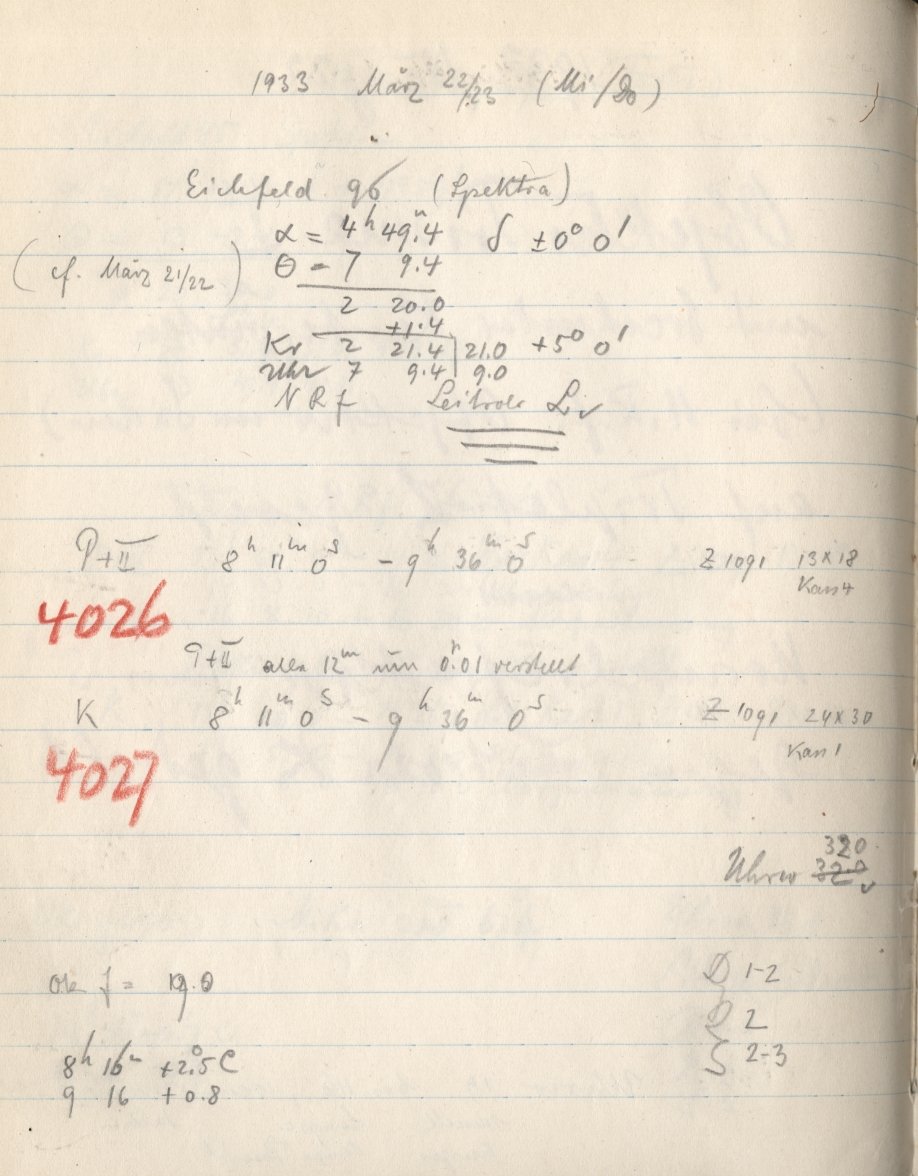 1933 März 22/23 (Mi/Do)
Eichfeld 96 (Spektra)
α = 4h 49m.4 δ ±0° 0'
(cf. März 21/22) θ = 7 9.4
2 20.0
+1.4
Kr 2 21.4 | 21.0 +5° 0'
Uhr 7 9.4 | 9.0
N R f Leitrohr L.
P+II 8h 11m 0s - 9h 36m 0s Z 1091 13×18
Kass 4
4026
P+II alle 12m um 0.01 verstellt
K 8h 11m 0s - 9h 36m 0s Z 1091 24×30
Kass 1
4027
320
Uhren 320
f = 19.0 D 1-2
2
8h 16m +2°.5 C 2-3
9 16 +0.8